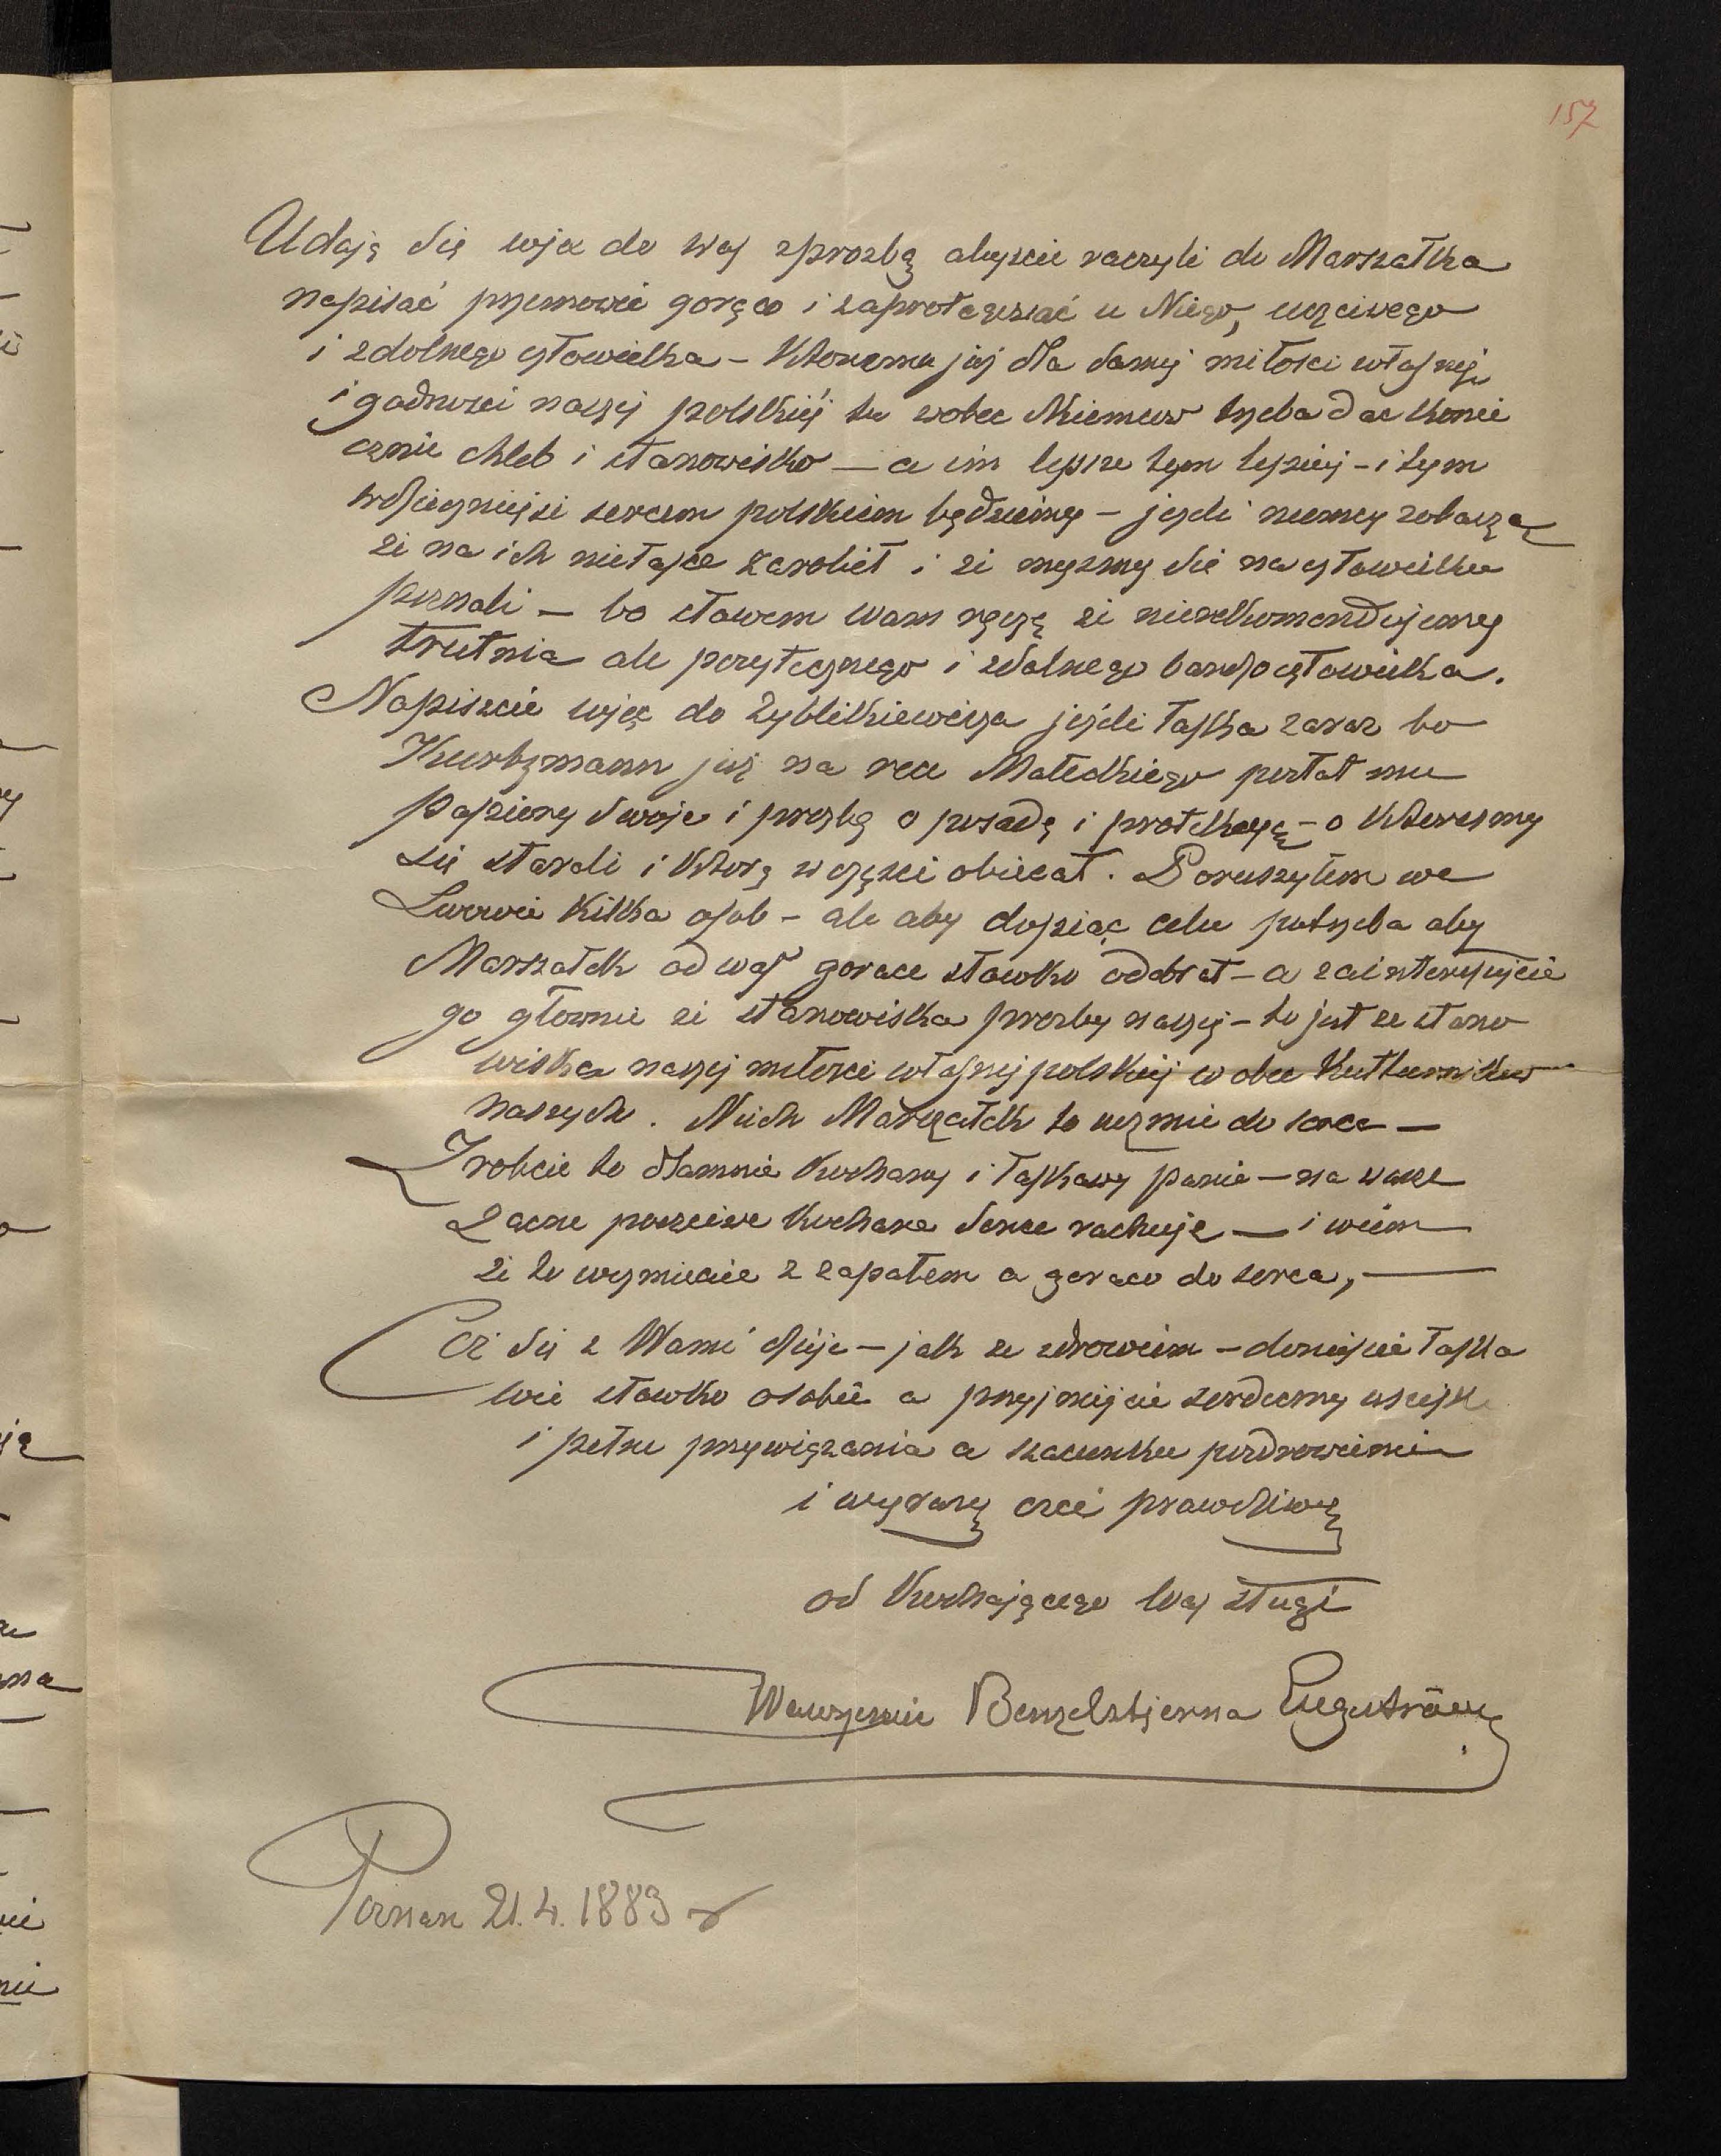 157
Udaję się więc do Was z prozbą abyscie raczyli do Marszałka
napisać przemowić gorąco i zaprotegować u Niego, uczciwego
i zdolnego człowieka – Któremu już dla samej miłosci własnej
i godnosci naszej polskiéj tu wobec Niemców trzeba dac konie
cznie chleb i stanowisko – a im lepsze tym lepiej – i tym
wdzięczniejsi sercem polskiem będziemy – jeżeli niemcy zobaczą
że na ich niełaskę zarobił i że myszmy się na człowieku
poznali – bo słowem Wam ręczę że nierekomendujemy
trutnia ale pożytecznego i zdolnego bardzo człowieka.
Napiszcie więc do Zyblikiewicza jeżeli łaska zaraz bo
Kurtzmann już na ręce Małeckiego posłał mu
papiery swoje i prozbę o posadę i protekcyę – o któresmy
się starali i którą w części obiecał. Poruszyłem we
Lwowie kilka osob – ale aby dopiąc celu potrzeba aby
Marszałek od was gorace słowko odebrał – a zainteresujcie
go głownie ze stanowiska prozby naszej – to jest ze stano
wiska naszej miłosci własnej polskiej wobec Kulturników
naszych. Niech Marszałek to wezmie do serca –
Zrobcie to dlamnie kochany i łaskawy panie – na wasze
zacne poczciwe kochane serce rachuję – i wiem
że to wezmiecie z zapałem a goraco do serca, –
Coż się z Wami dzieje – jak ze zdrowiem – doniescie łaska
wie słowko o sobie a przyjmijcie serdeczny uscisk
i pełne przywiązania a szacunku pozdrowienie
i wyrazy czci prawdziwej
od Kochającego Was sługi
Wawrzeniec Benzelstjerna Engeström
Poznan 21.4.1883 r